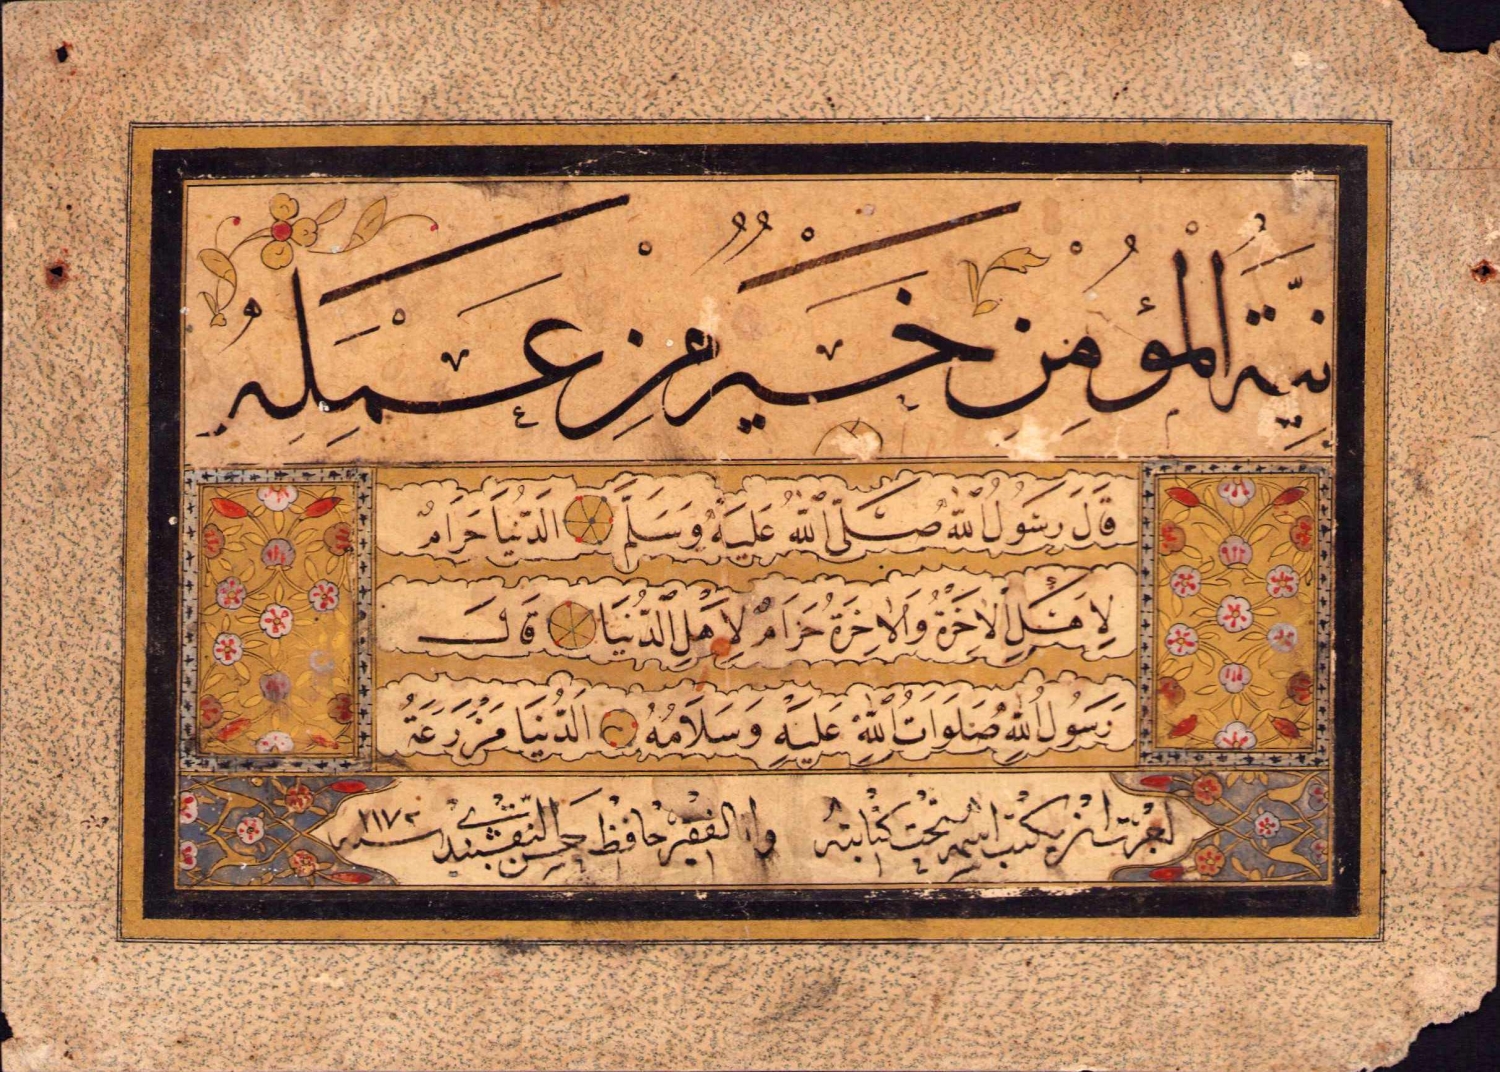 نِيَّةُ الْمُؤْمِنِ خَيْرٌ مِنْ عَمَلِهِ
قَالَ رَسُولُ اللّٰهِ صَلَّى اللّٰهُ عَلَيْهِ وَسَلَّمَ الَدُّنْيَا حَرَامٌ
لِاَهْلِ الْاٰخِرَةِ وَالْاٰخِرَةُ حَرَامٌ لِاَهْلِ الدُّنْيَا قَالَ
رَسُولُ اللّٰهِ صَلَوَاتُ اللّٰهِ عَلَيْهِ وَسَلَامُهُ اَلدُّنْيَا مَزْرَعَةُ
يكتب اسمه تحت كتابته وانا الفقير حافظ حسن النقشبندى سنه ١١٧٢